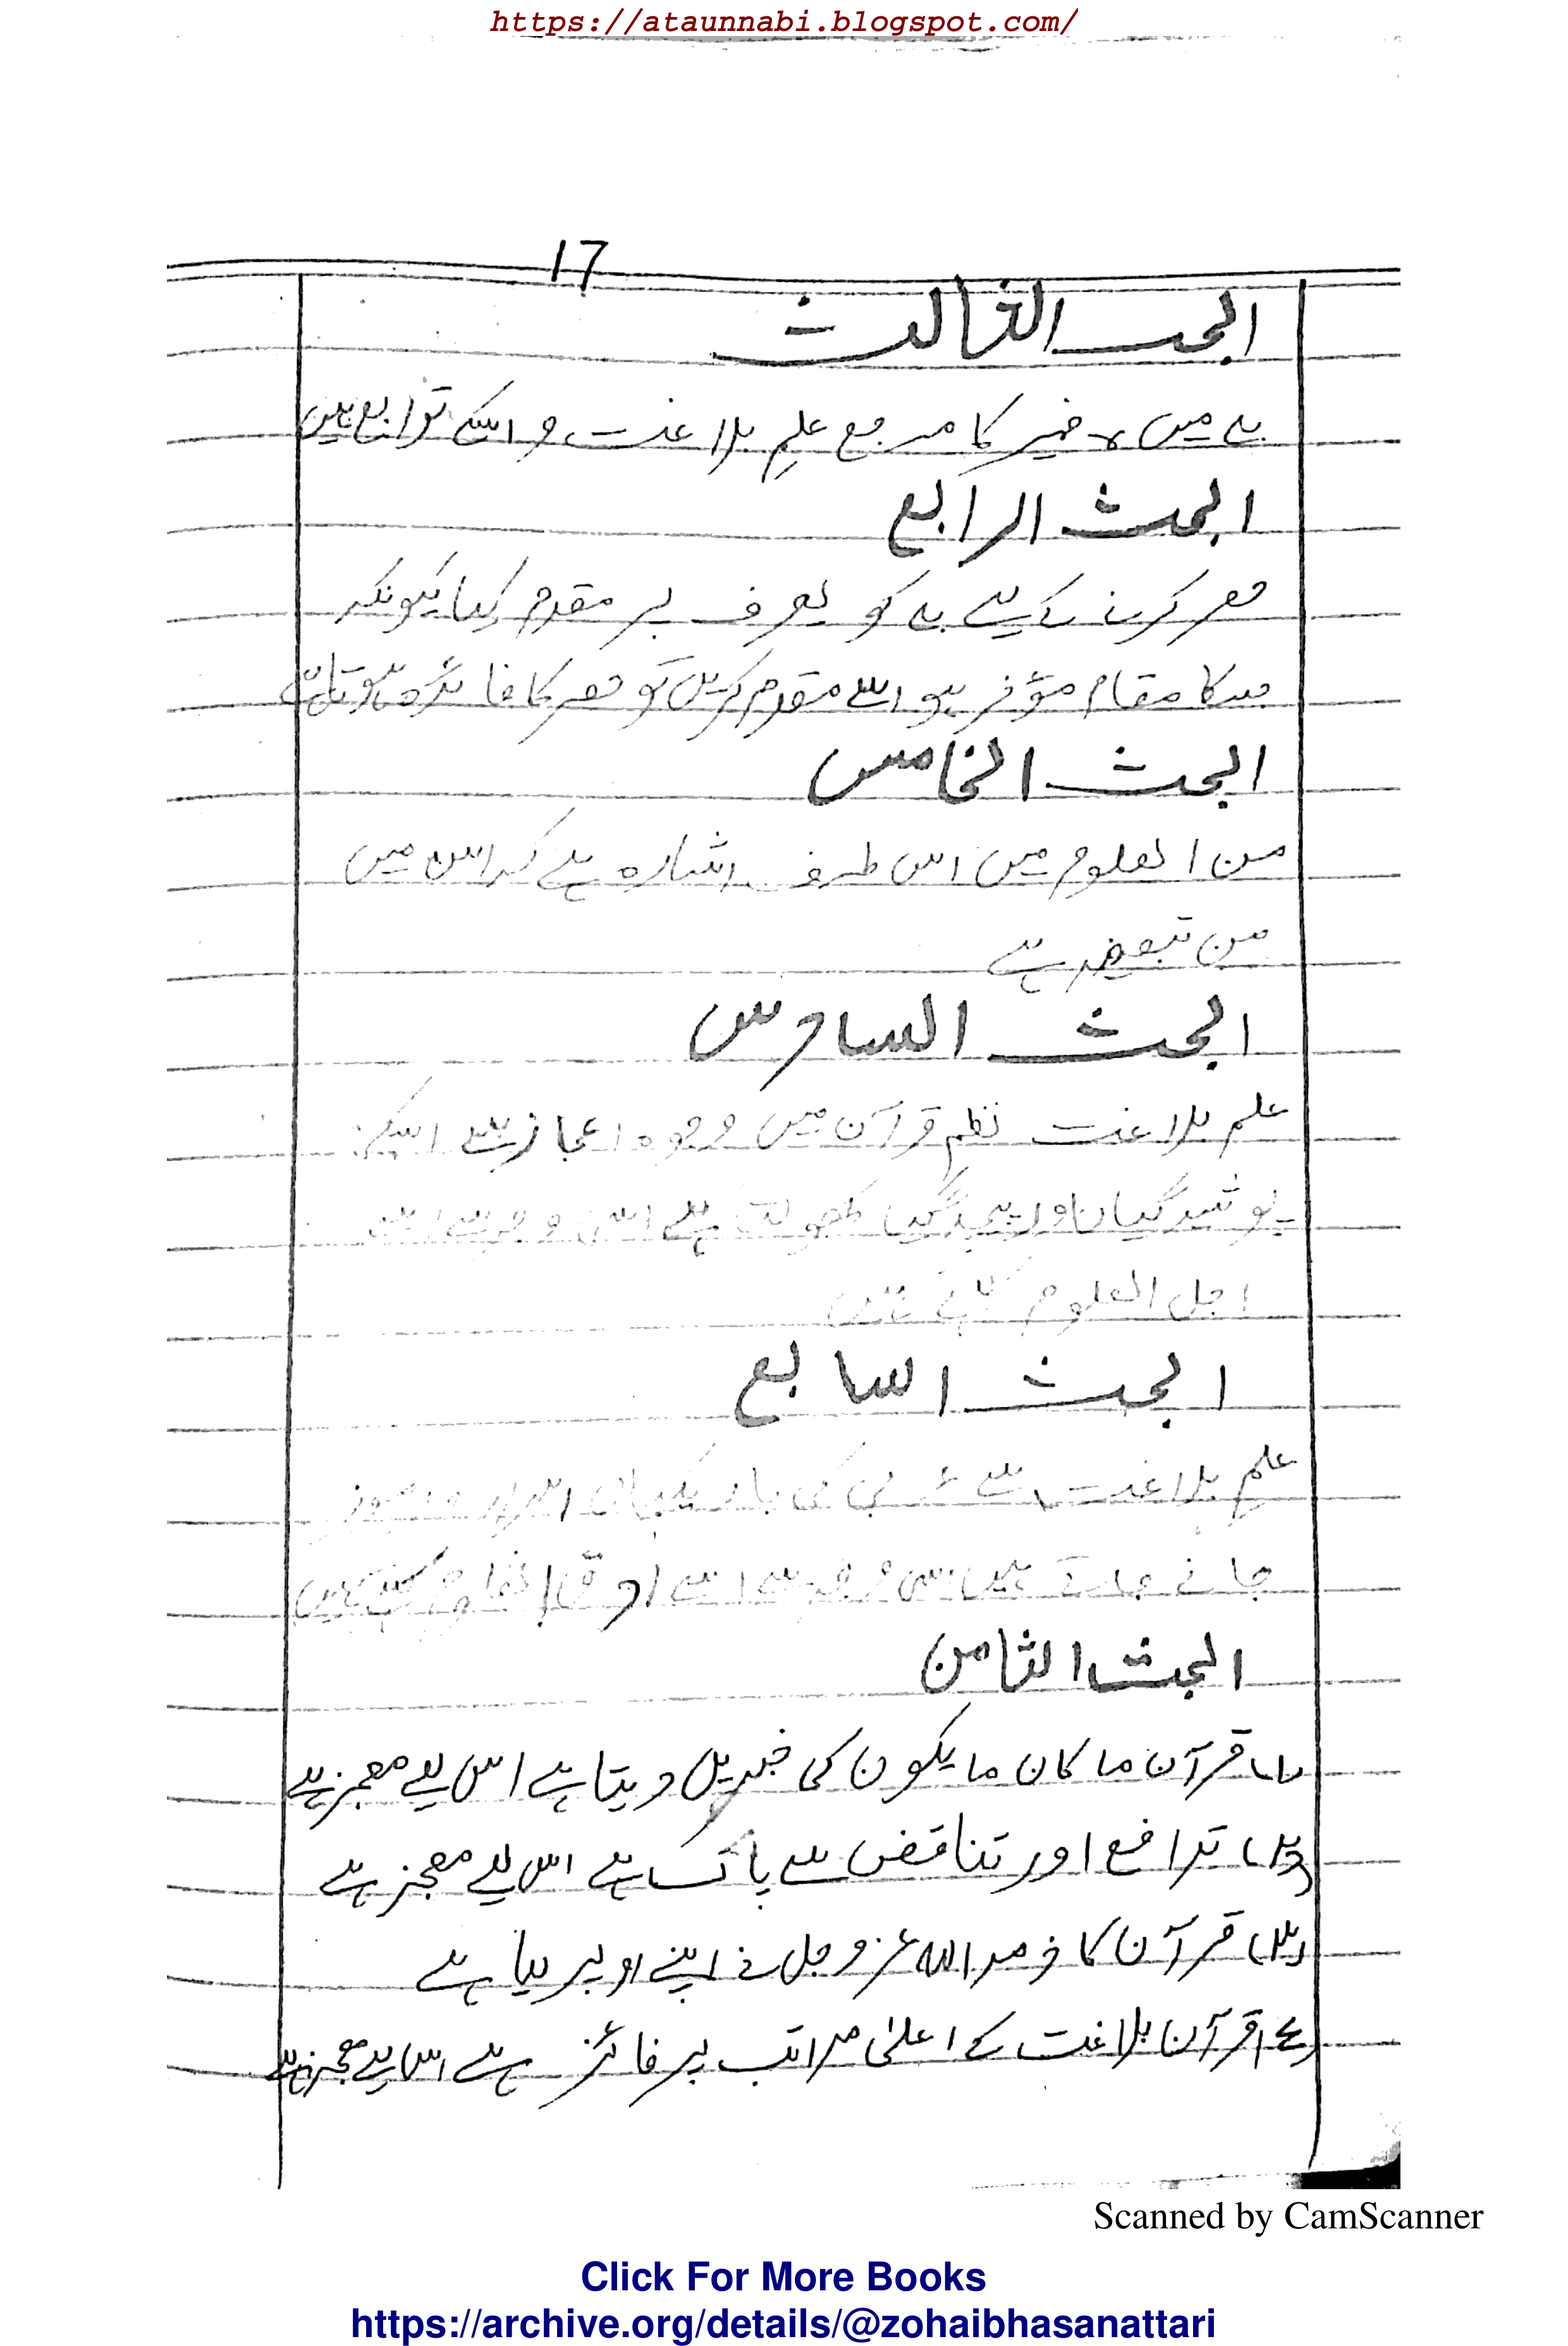 https://ataunnabi.blogspot.com/
17
البحث الثالث
بہ میں ہ ضمیر کا مرجع علمِ بلاغت و اسکے توابع ہیں
البحث الرابع
حصر کرنے کے لیے بہ کو یعرف پر مقدم کیا کیونکہ
جسکا مقام مؤخر ہو اسے مقدم کریں تو حصر کا فائدہ ہوتا ہے
البحث الخامس
من العلوم میں اس طرف اشارہ ہے کہ اس میں
من تبعیضہ ہے
البحث السادس
علم بلاغت نظم قرآن میں وجوہ اعجاز سے اسکی
پوشیدگیاں اور پیچیدگیاں کھولتا ہے اس وجہ سے اسے
اجل العلوم
البحث السابع
علم بلاغت سے عربی کی باریکیاں اسرار و رموز
جانے جاتے ہیں اسی وجہ سے اسے ادق العلوم کہتے ہیں
البحث الثامن
(۱) قرآن ما کان ما یکون کی خبریں دیتا ہے اس لیے معجز ہے
(۲) تدافع اور تناقض سے پاک ہے اس لیے معجز ہے
(۳) قرآن کا ذمہ اللہ عزوجل نے اپنے اوپر لیا ہے
(٤) قرآن بلاغت کے اعلیٰ مراتب پر فائز ہے اس لیے معجز ہے
Scanned by CamScanner
Click For More Books
https://archive.org/details/@zohaibhasanattari